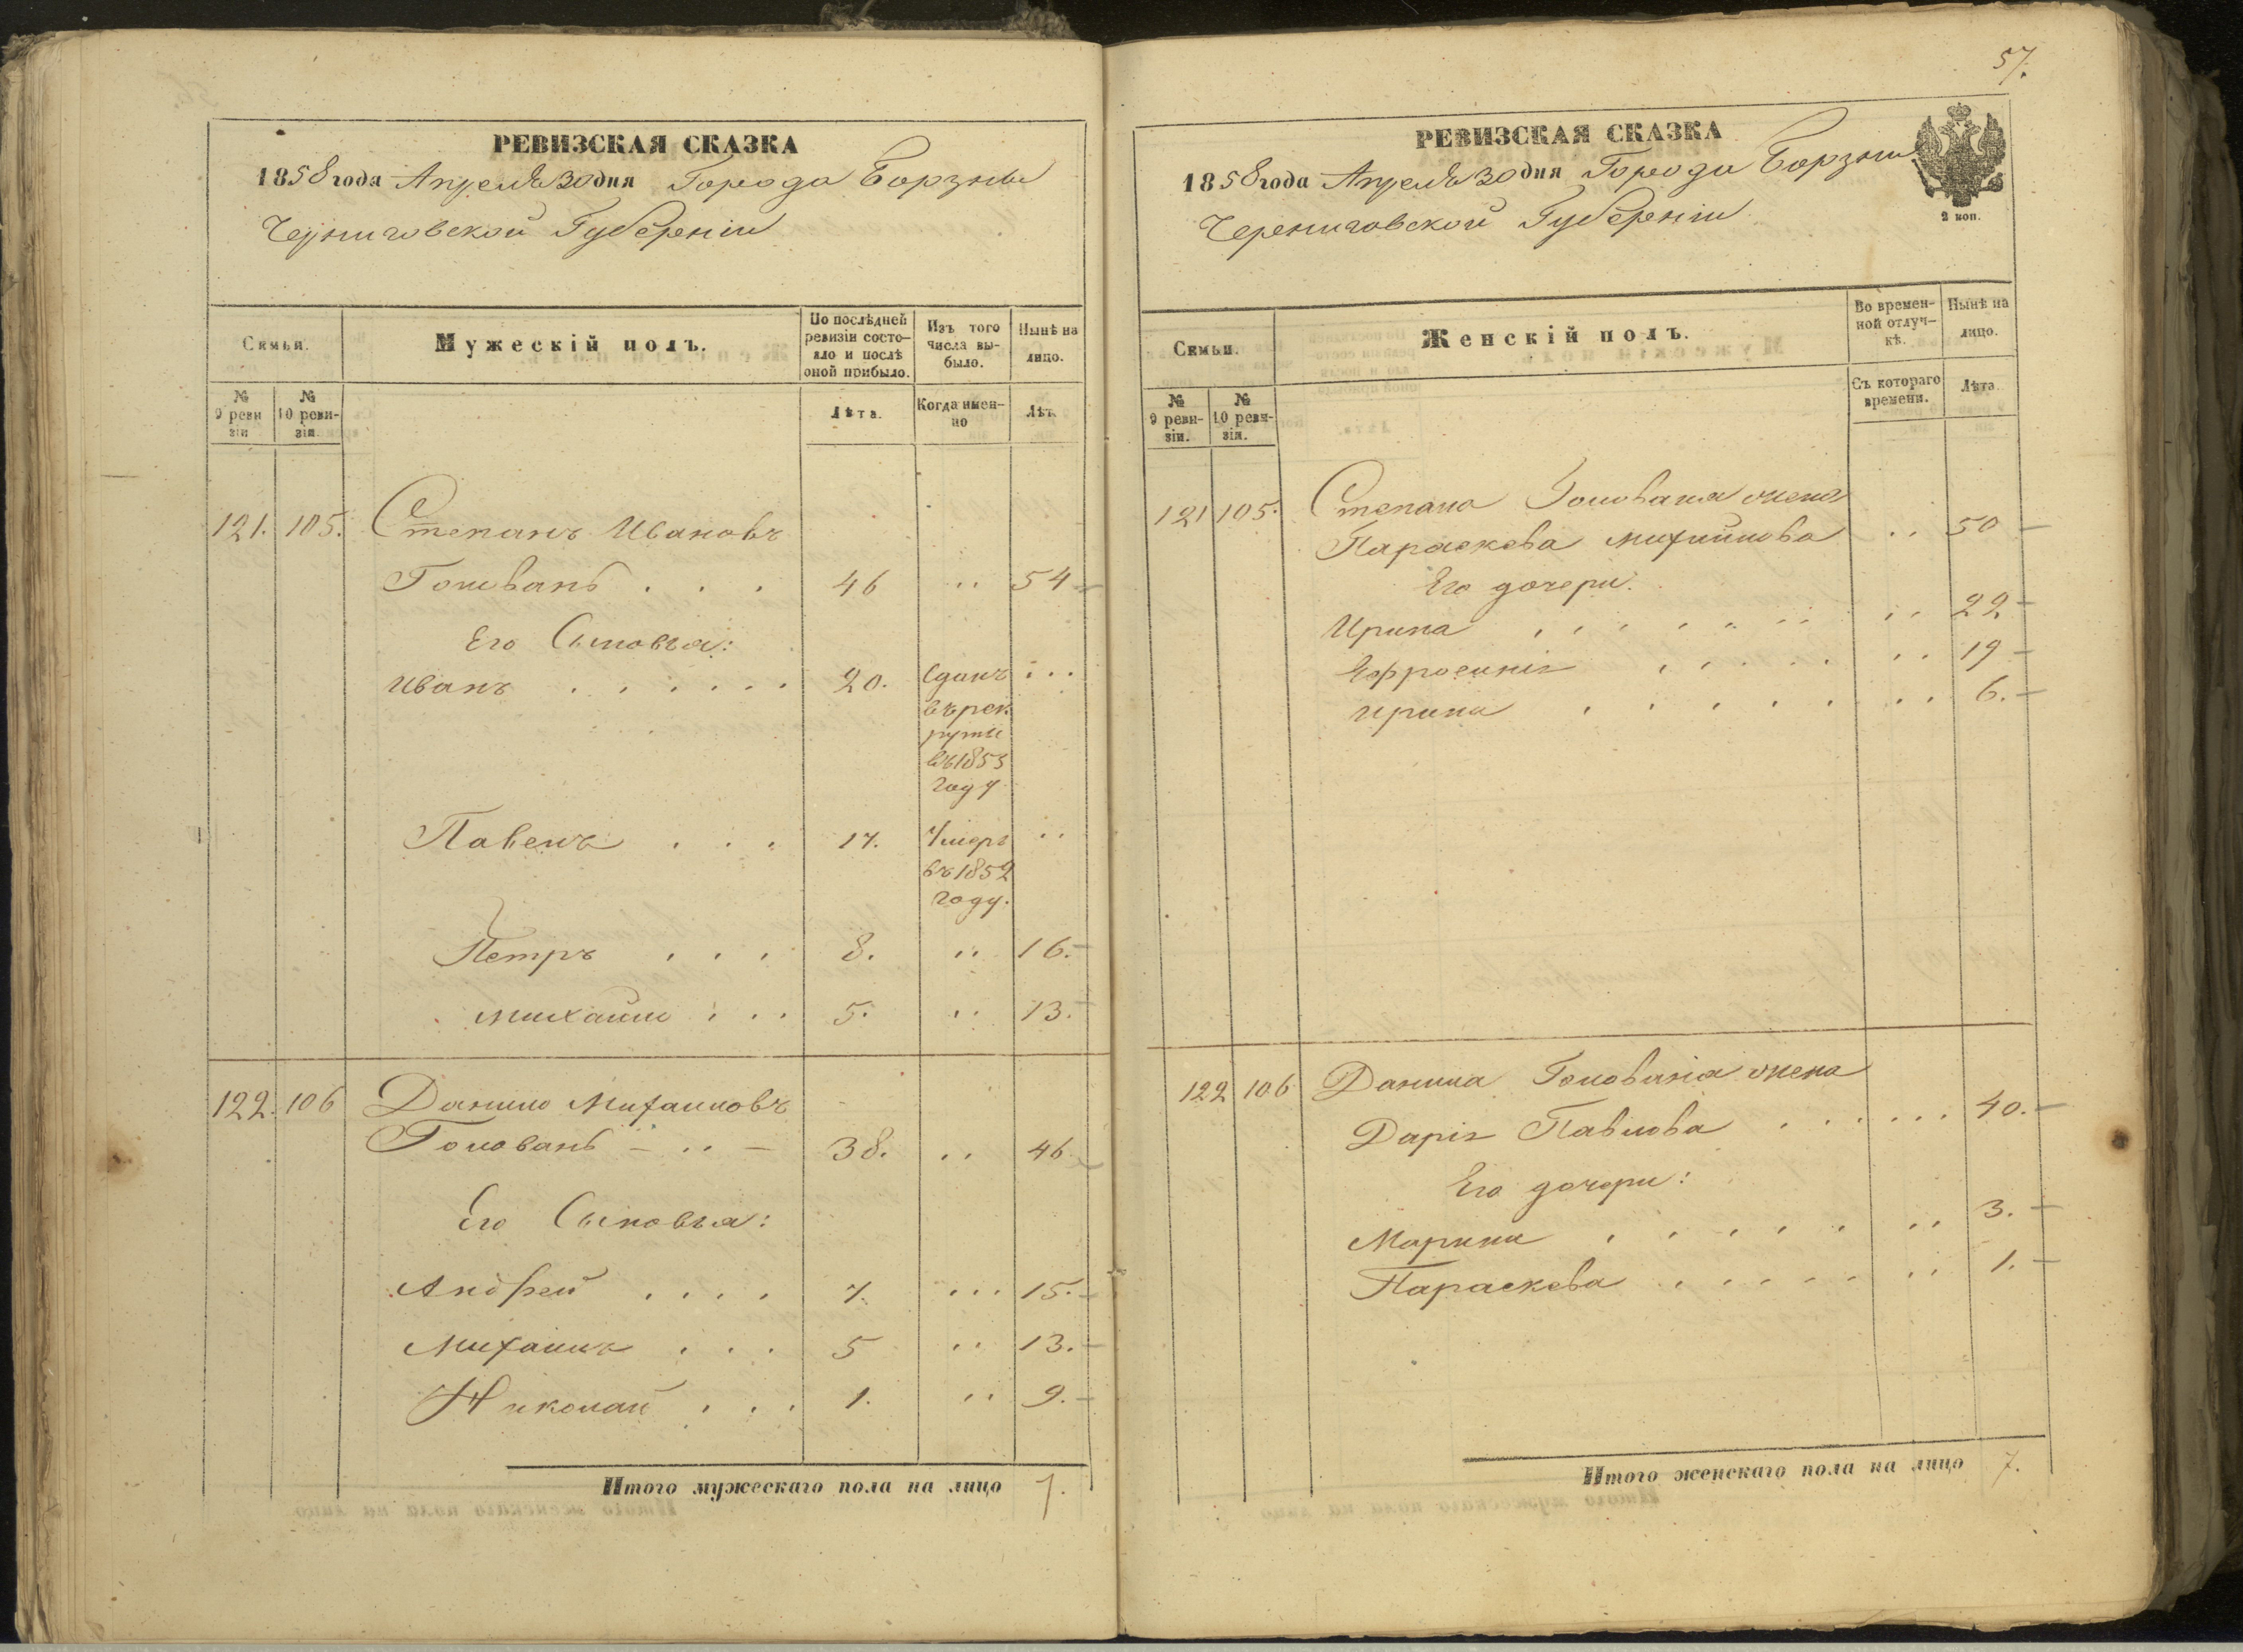 РЕВИЗСКАЯ СКАЗКА
1858 года Апреля 30 дня Города Борзны
Черниговской Губерніи
Сѣмьи.
Мужескій полъ.
По послѣдней ревизіи состояло и послѣ оной прибыло.
Изъ того числа выбыло.
Нынѣ на лицо.
№ 9 ревизіи
№ 10 ревизіи.
Лѣта.
Когда именно
Лѣт.
121. 105. Степанъ Ивановъ
Голованъ . . . 46 .. 54
Его Сыновья:
Иванъ . . . . . . 20. Сданъ ...
въ рек
руты
въ 1853
году
Павелъ . . . 17. Умеръ ..
въ 1852
году.
Петръ . . . 8. .. 16.
Михайло . . . 5. .. 13.
122. 106 Данило Михаиловъ
Голованъ - .. - 38. .. 46
Его Сыновья:
Андрей . . . . 7. ... 15.
Михаилъ . . . 5 .. 13.
Николай . . . 1. .. 9.
Итого мужескаго пола на лицо 7.
57.
РЕВИЗСКАЯ СКАЗКА
1858 года Апреля 30 дня Города Борзны
Черениговской Губерніи
2 коп.
Сѣмьи.
Женскій полъ.
Во временной отлучкѣ.
Нынѣ на лицо.
№ 9 ревизіи.
№ 10 ревизіи.
Съ котораго времени.
Лѣта
121 105. Степана Голованя жена
Параскева Михайлова .. 50
Его дочери:
Ирина . . . . . . . .. 22
Ефросинія . . . . . .. 19
Ирина . . . . . .. 6.
122 106 Данила Голованя жена
Дарія Павлова . . . . . . 40.
Его дочери:
Марина . . . . . .. 3.
Параскева . . . . . .. 1.
Итого женскаго пола на лицо 7.